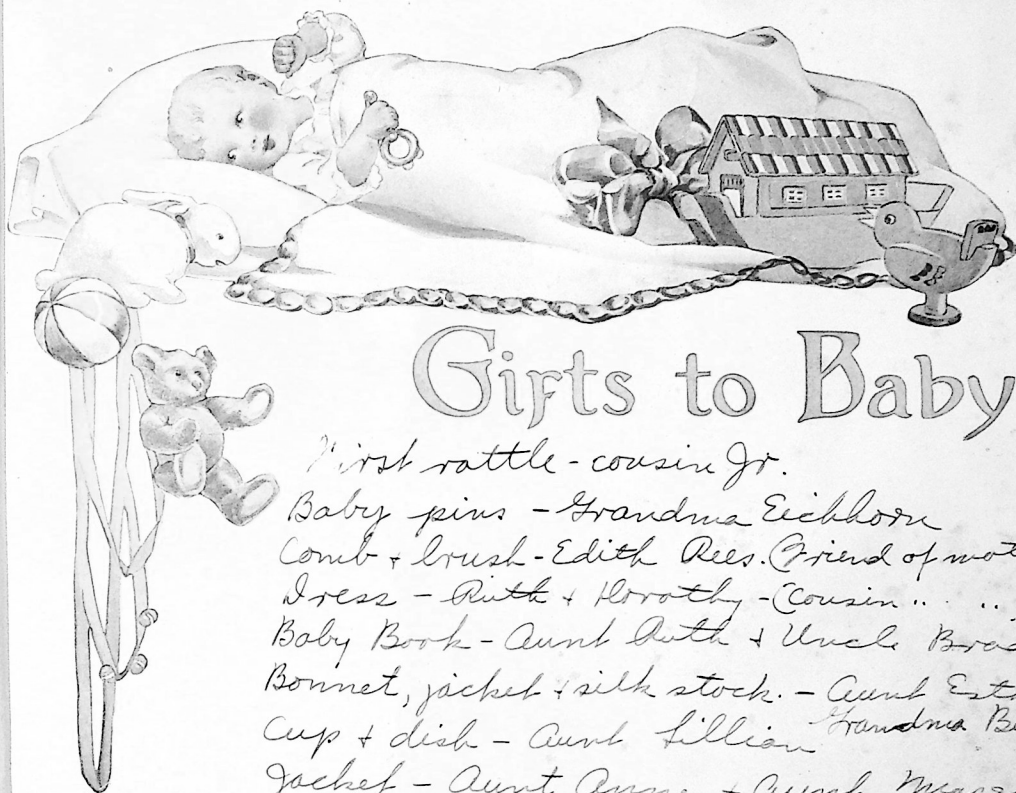 Gifts to Baby
First rattle - cousin Jr.
Baby pins - Grandma Eichhorn
Comb + brush - Edith Rees. (Friend of
Dress - Ruth + Dorothy - (Cousin " "
Baby Book - Aunt Ruth + Uncle
Bonnet, jacket + silk stock. - Aunt
Grandma
Cup + dish - Aunt Lillian
Jacket - Aunt + Aunt